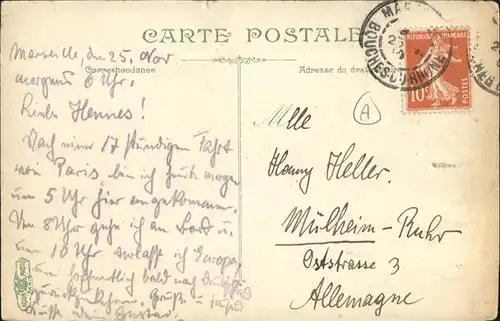 CARTE POSTALE
Correspondance
Adresse du
Marseille, den 25. Nov
morgens 6 Uhr.
Liebe Hennes!
Nach einer 17 stündigen Fahrt
von Paris bin ich heute morgen
um 5 Uhr hier angekommen.
Um 8 Uhr gehe ich an Bord u.
um 10 Uhr verlasse ich Europa,
um hoffentlich bald nach
zurückzukehren. Grüße
dein Gustav.
RÉPUBLIQUE FRANÇAISE
10c
POSTES
BOUCHES DU RHONE
A
Mlle
Hanny Heller.
Mülheim-Ruhr
Oststrasse 3
Allemagne